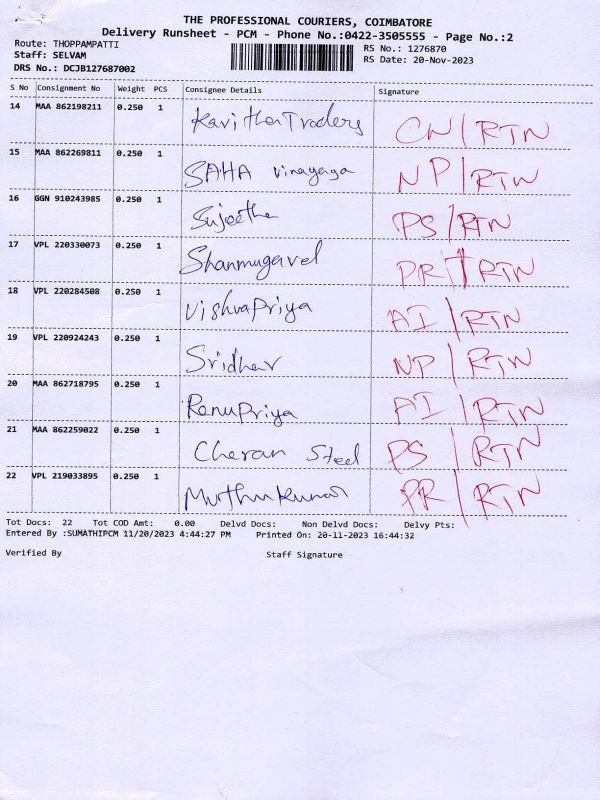 THE PROFESSIONAL COURIERS, COIMBATORE
Delivery Runsheet - PCM - Phone No.:0422-3505555 - Page No.:2
Route: THOPPAMPATTI
RS No.: 1276870
Staff: SELVAM
RS Date: 20-Nov-2023
DRS No.: DCJB127687002
S No Consignment No Weight PCS Consignee Details Signature
14 MAA 862198211 0.250 1 Kavitha Traders CN/RTN
15 MAA 862269811 0.250 1 SAHA vinayaga NP/RTN
16 GGN 910243985 0.250 1 Sujeetha PS/RTN
17 VPL 220330073 0.250 1 Shanmugavel PR/RTN
18 VPL 220284508 0.250 1 VishvaPriya AI/RTN
19 VPL 220924243 0.250 1 Sridhar NP/RTN
20 MAA 862718795 0.250 1 RenuPriya AI/RTN
21 MAA 862259022 0.250 1 Cheran Steel PS/RTN
22 VPL 219033895 0.250 1 Muthukumar PR/RTN
Tot Docs: 22 Tot COD Amt: 0.00 Delvd Docs: Non Delvd Docs: Delvy Pts:
Entered By :SUMATHIPCM 11/20/2023 4:44:27 PM Printed On: 20-11-2023 16:44:32
Verified By Staff Signature